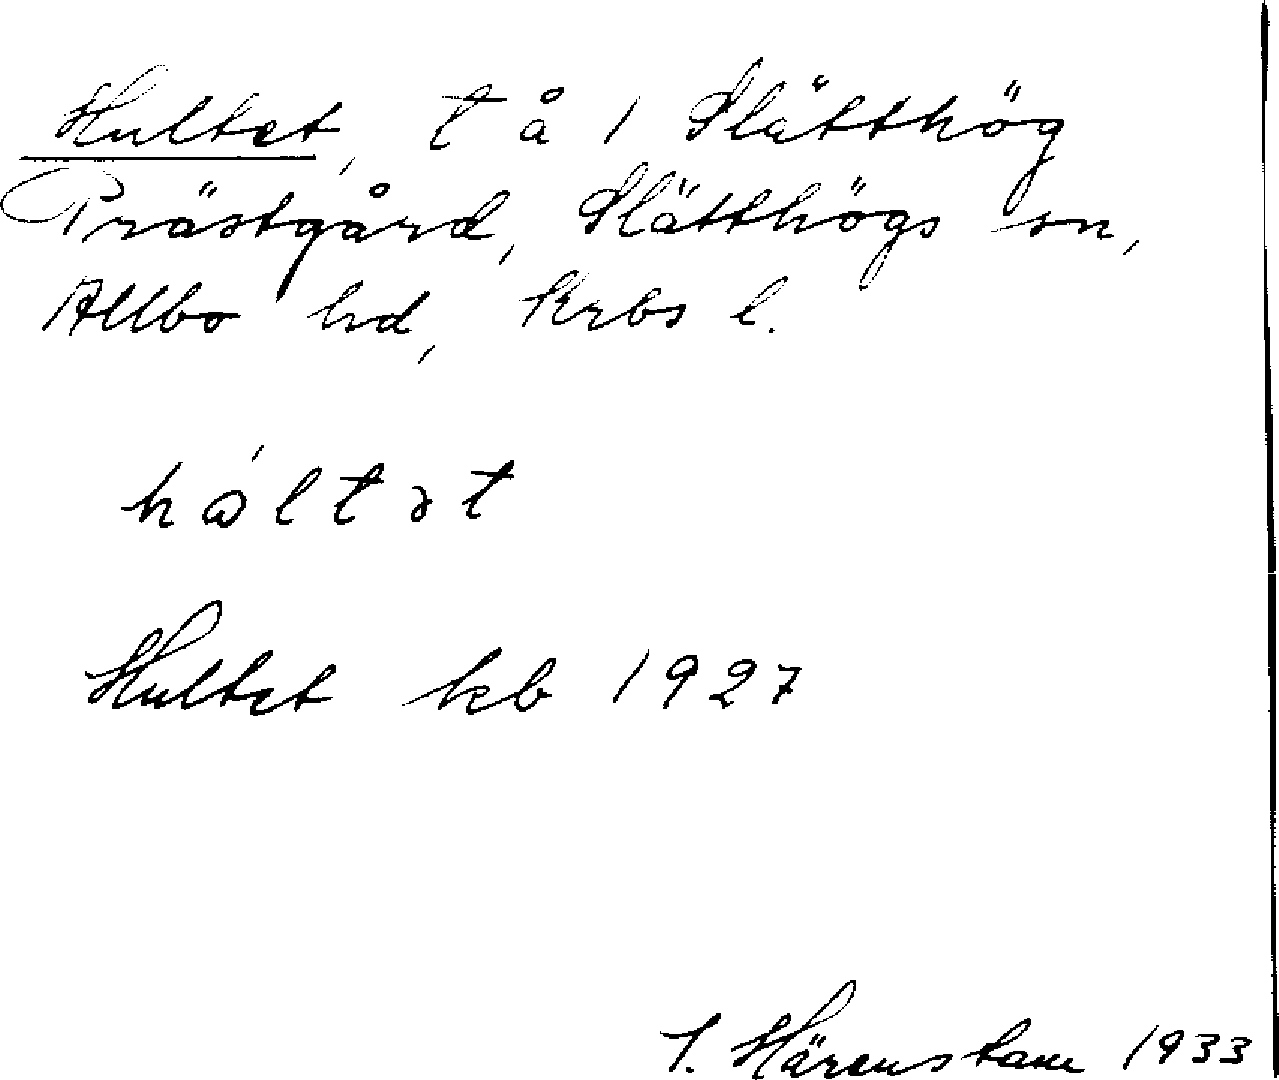 Hultet, t å 1 Slätthög
Prästgård, Slätthögs sn,
Allbo hd, Krbs l.
hól tət
Hultet kb 1927
I. Härenstam 1933